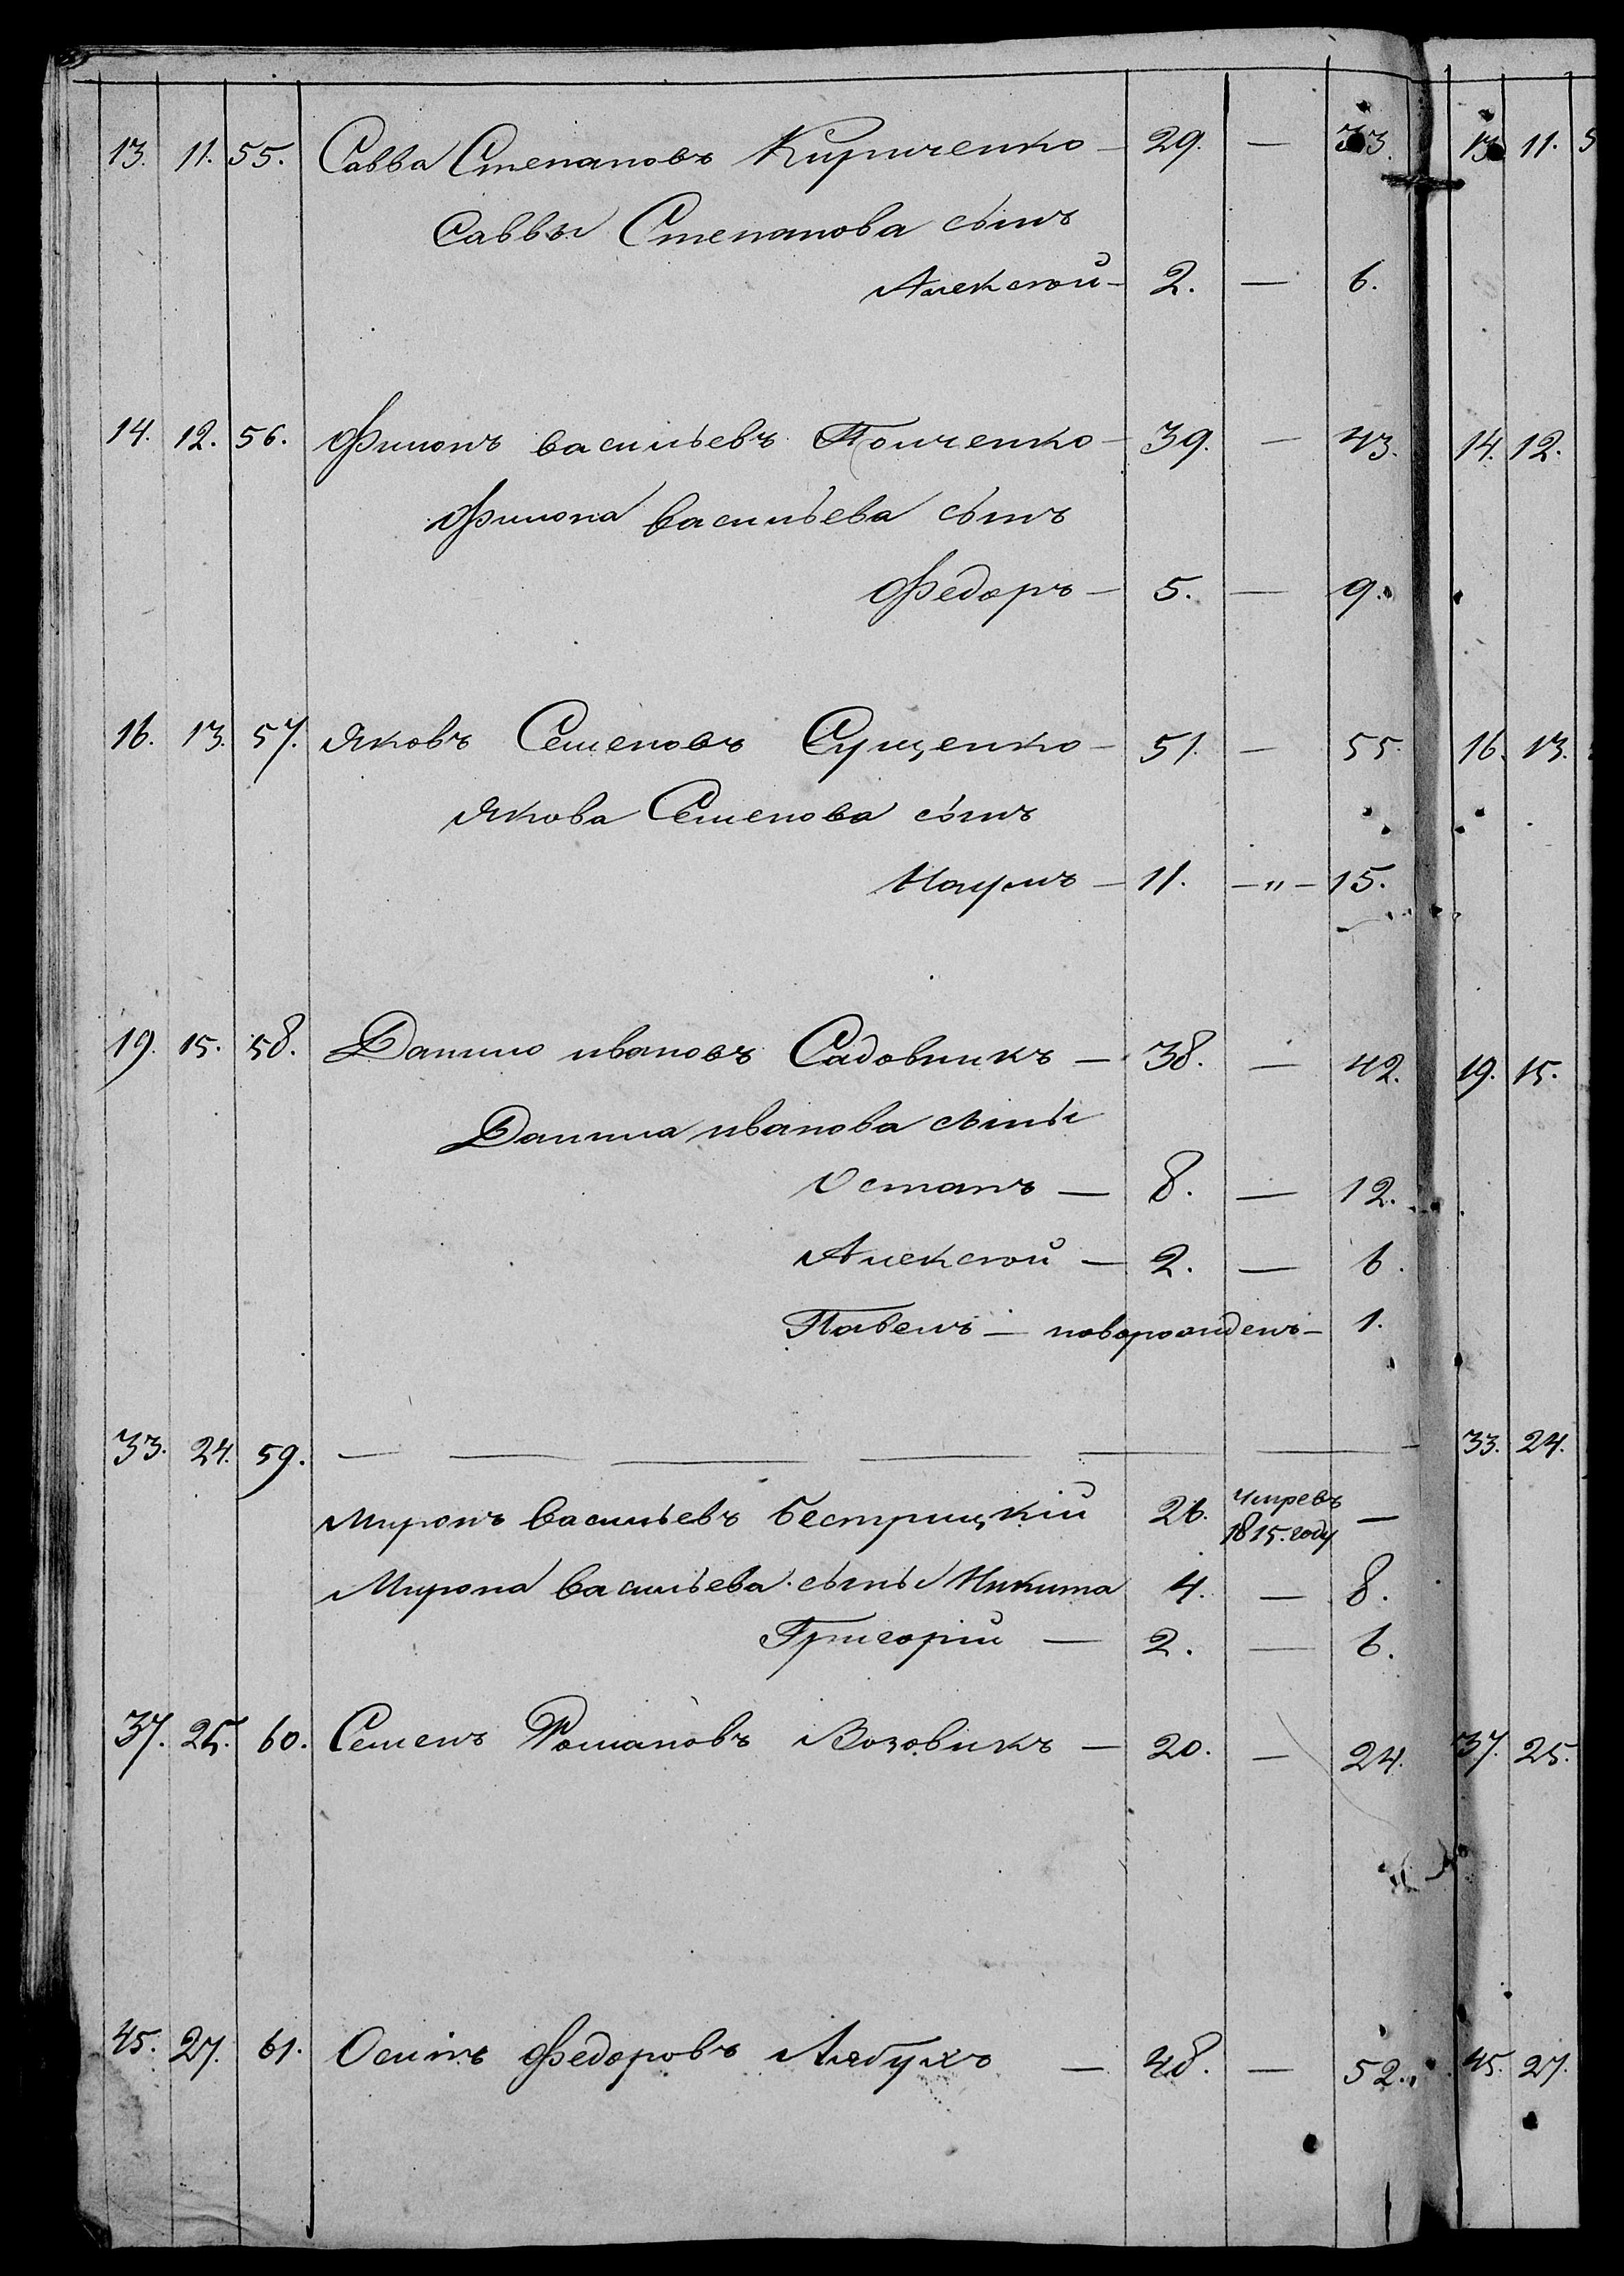 13. 11. 55. Савва Степановъ Кириченко — 29. — 33. 13. 11. 5
Саввы Степанова сынъ
Алексѣй — 2. — 6.
14. 12. 56. Филонъ Васильевъ — 39. — 43. 14. 12.
Филона Васильева сынъ
Федоръ — 5. — 9.
16. 13. 57. Яковъ Семеновъ Сущенко — 51. — 55. 16. 13.
Якова Семенова сынъ
Наумъ — 11. — " — 15.
19. 15. 58. Данило Ивановъ Садовникъ — 38. — 42. 19. 15.
Данила Иванова сыны
Остапъ — 8. — 12.
Алексѣй — 2. — 6.
Павелъ — новорожденъ — 1.
33. 24. 59. — — — — — — 33. 24.
Миронъ Васильевъ Бестрицкій 26. умревъ 1815. году —
Мирона Васильева сыны Никита 4. — 8.
Григорій — 2. — 6.
37. 25. 60. Семенъ Романовъ Возовикъ — 20. — 24. 37. 25.
45. 27. 61. Осипъ Федоровъ — 48. — 52. 45. 27.